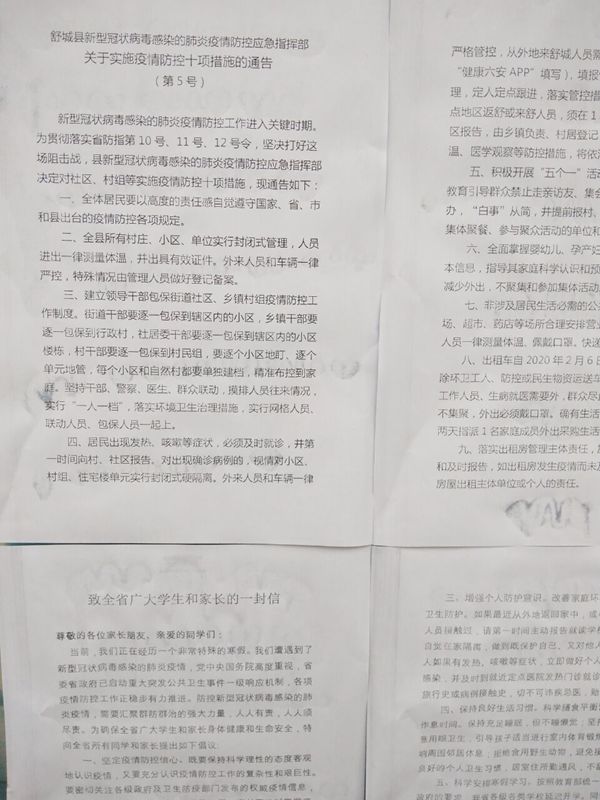 舒城县新型冠状病毒感染的肺炎疫情防控应急指挥部
关于实施疫情防控十项措施的通告
（第5号）
新型冠状病毒感染的肺炎疫情防控工作进入关键时期。
为贯彻落实省防指第10号、11号、12号令，坚决打好这
场阻击战，县新型冠状病毒感染的肺炎疫情防控应急指挥部
决定对社区、村组等实施疫情防控十项措施，现通告如下：
一、全体居民要以高度的责任感自觉遵守国家、省、市
和县出台的疫情防控各项规定。
二、全县所有村庄、小区、单位实行封闭式管理，人员
进出一律测量体温，并出具有效证件。外来人员和车辆一律
严控，特殊情况由管理人员做好登记备案。
三、建立领导干部包保街道社区、乡镇村组疫情防控工
作制度。街道干部要逐一包保到辖区内的小区，乡镇干部要
逐一包保到行政村，社居委干部要逐一包保到辖区内的小区
楼栋，村干部要逐一包保到村民组，要逐个小区地盯、逐个
单元地管，每个小区和自然村都要单独建档，精准布控到家
庭。坚持干部、警察、医生、群众联动，摸排人员往来情况，
实行“一人一档”，落实环境卫生治理措施，实行网格人员、
联动人员、包保人员一起上。
四、居民出现发热、咳嗽等症状，必须及时就诊，并第
一时间向村、社区报告。对出现确诊病例的，视情对小区、
村组、住宅楼单元实行封闭式硬隔离。外来人员和车辆一律
严格管控，从外地来舒城人员需
“健康六安APP”填写），填报
理，定人定点跟进，落实管控措
点地区返舒或来舒人员，须在1
区报告，由乡镇负责、村居登记
温、医学观察等防控措施，将依
五、积极开展“五个一”活动
教育引导群众禁止走亲访友、集会
办，“白事”从简，并提前报村、
集体聚餐、参与聚众活动的单位和
六、全面掌握婴幼儿、孕产妇
本信息，指导其家庭科学认识和预
减少外出，不聚集和参加集体活动
七、非涉及居民生活必需的公共
场、超市、药店等场所合理安排营业
人员一律测量体温、佩戴口罩。快递
八、出租车自2020年2月6日
除环卫工人、防控或民生物资运送车
工作人员、生病就医需要外，群众尽
不集聚，外出必须戴口罩。确有生活
两天指派1名家庭成员外出采购生活
九、落实出租房管理主体责任，
和及时报告，如出租房发生疫情而未及
房屋出租主体单位或个人的责任。
致全省广大学生和家长的一封信
尊敬的各位家长朋友、亲爱的同学们：
当前，我们正在经历一个非常特殊的寒假。我们遭遇到了
新型冠状病毒感染的肺炎疫情，党中央国务院高度重视，省
委省政府已启动重大突发公共卫生事件一级响应机制，各项
疫情防控工作正稳步有力推进。防控新型冠状病毒感染的肺
炎疫情，需要汇聚群防群治的强大力量，人人有责，人人须
尽责。为确保全省广大学生和家长身体健康和生命安全，特
向全省所有同学和家长提出如下倡议：
一、坚定疫情防控信心。既要保持科学理性的态度客观
地认识疫情，又要充分认识疫情防控工作的复杂性和艰巨性。
要密切关注各级政府及卫生防疫部门发布的权威疫情信息，
三、增强个人防护意识。改善家庭环
卫生防护。如果最近从外地返回家中，或
人员接触过，请第一时间主动报告就读学校
自觉在家隔离，做到既保护自己，又对他人
人如果有发热、咳嗽等症状，立即做好个人
感染，并及时到就近定点医院发热门诊就诊
旅行史或病例接触史，切不可讳疾忌医，
四、保持良好生活习惯。科学膳食平衡
作息时间。保持充足睡眠，但不睡懒觉；坚持
意用眼卫生，引导孩子适当进行室内体育锻炼
响周围邻居休息；拒绝食用野生动物，避免接
良好的个人卫生习惯，居室住所勤通风，不
五、科学安排寒假学习。按照教育部统一
政府的要求，我省各级各类学校延迟开学。同